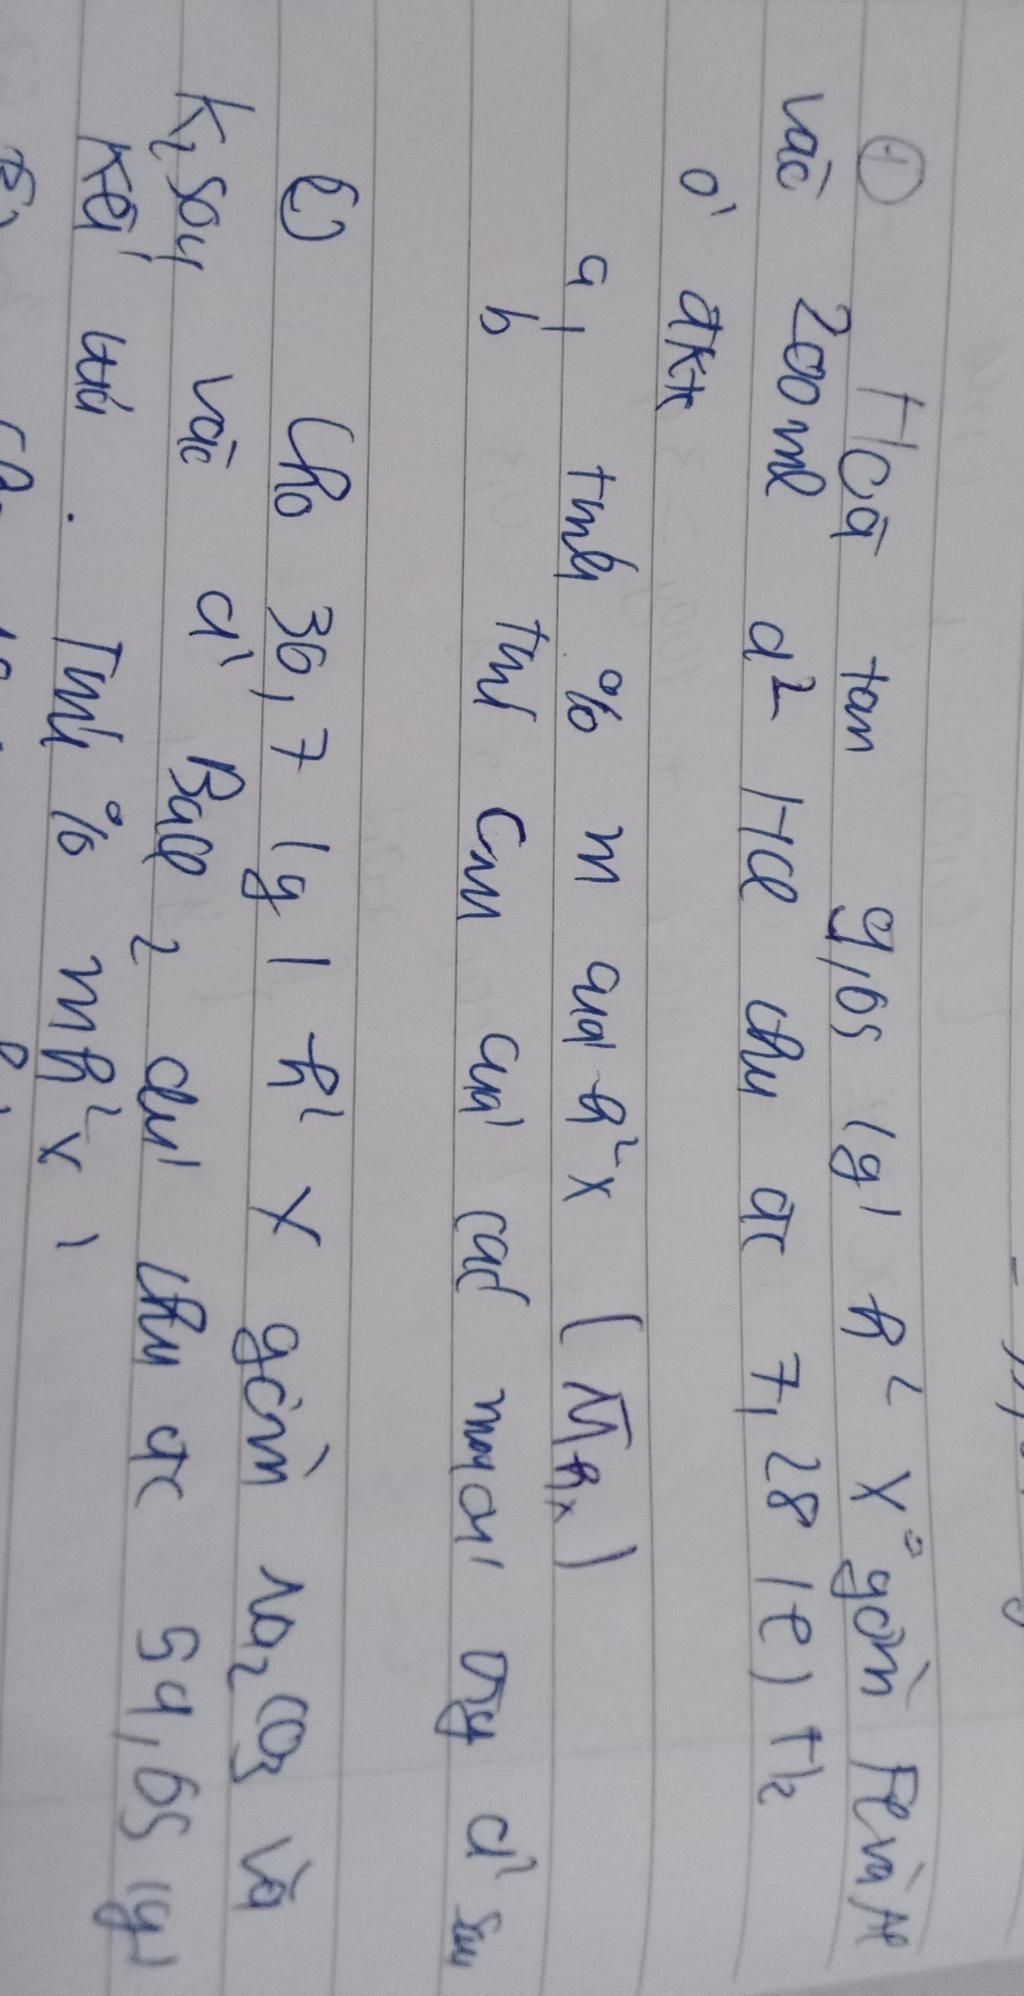 ① Hoà tan 9,65 (g) h² X gồm Fe và Al
vào 200ml d² HCl thu đc 7,28 (l) H₂
ở đktc
a, tính % m của h²X (M̅hx)
b Tính Cm của các muối trong d² sau
2) Cho 36,7 (g) h² X gồm Na₂CO₃ và
K₂SO₄ vào d² BaCl₂ dư thu đc 54,65 (g)
kết tủa . Tính % mh²X